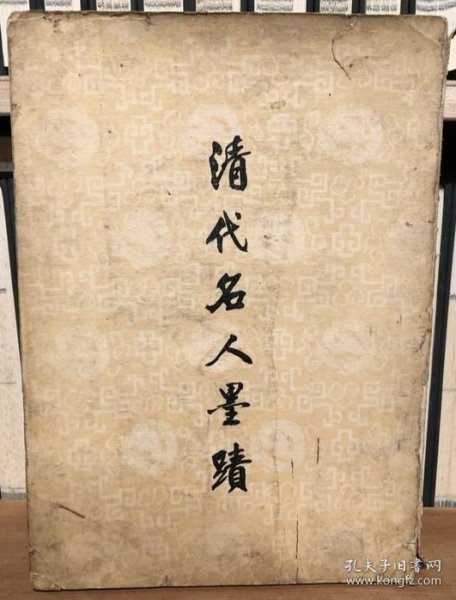 清代名人墨蹟
孔夫子旧书网
www.kongfz.com